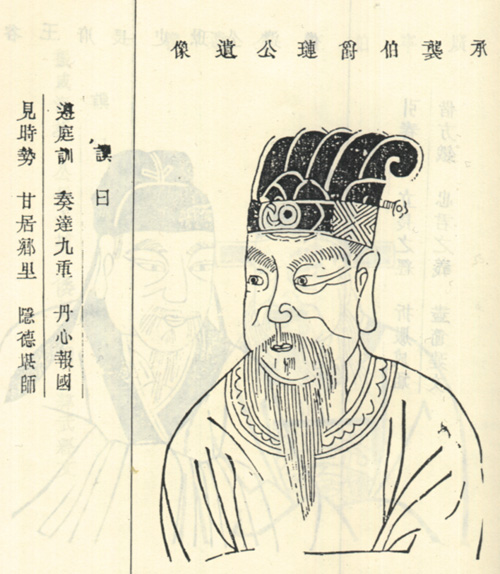 承襲伯爵璉公遺像
曰
遵庭訓 奏達九重 丹心報國
見時勢 甘居鄉里 隱德堪師